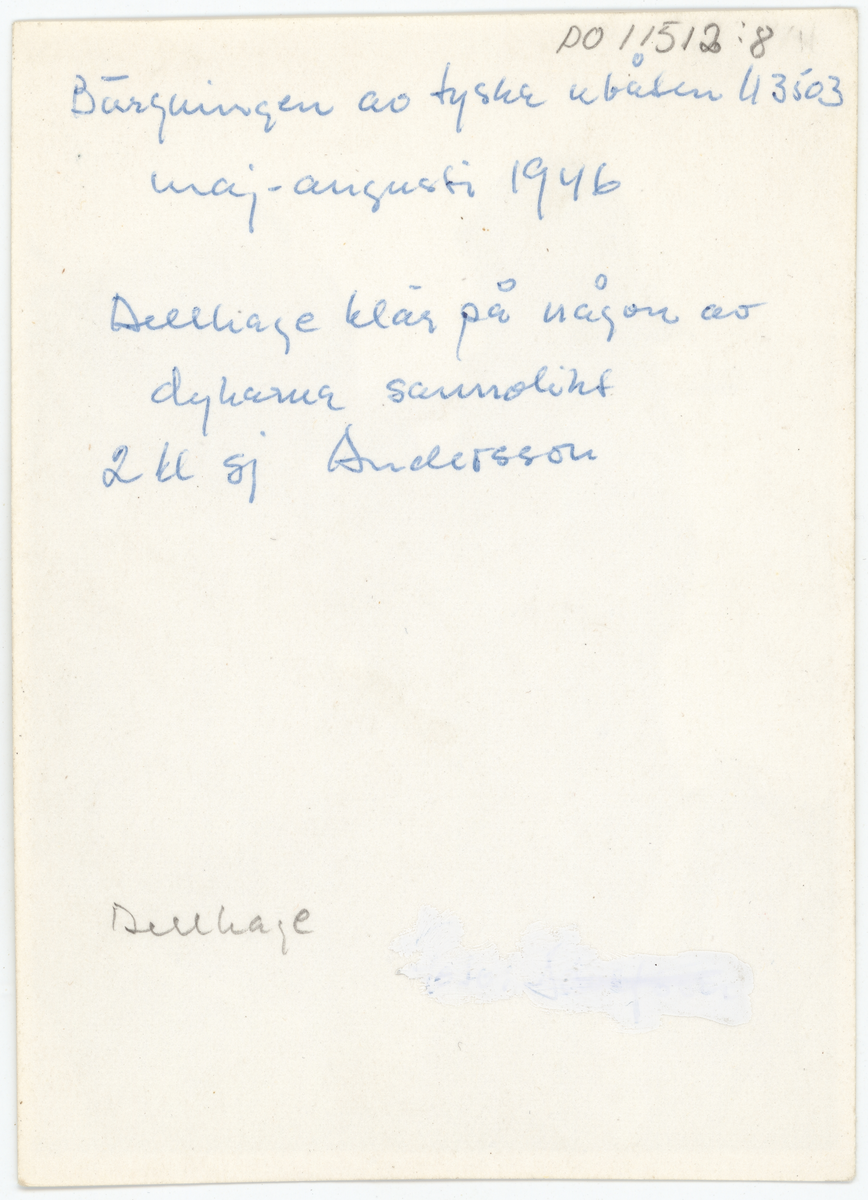 DO 11512:8
Bärgningen av tyska ubåten U3503
maj-augusti 1946
Dellhage klär på någon av
dykarna sannolikt
2 kl sj Andersson
Dellhage